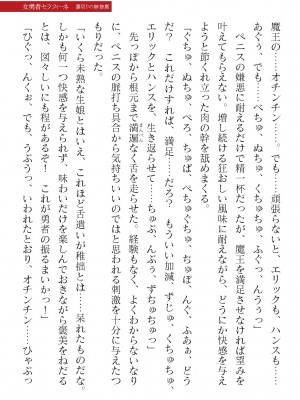 女勇者セラフィーネ
魔王の……オチンチン……でも……頑張らないと、エリックも、ハンスも……
あぐぅ、でも……べちゅ、ぬちゅ、くちゅちゅ、ふぐっ、んうぅっ」
ペニスの嫌悪に耐えるだけで精一杯だったが、魔王を満足させなければ望みを
叶えてもらえない。増し続ける狂おしい風味に耐えながら、どうにか快感を与え
ようと節くれ立った肉の幹を舐めまくる。
「ぐちゅ、べちゅ、べろ、ちゅば、べちゅぐちゅ、ちゅぼ、んぐ、ふあぁ、どう
だ？　これだけすれば、満足……だろ？　もういい加減、ずじゅ、くちゅちゅ、
エリックとハンスを、生き返らせて……ちゅぶ、んぶぅ、ずちゅちゅっ」
先っぽから根元まで満遍なく舌を走らせた。経験もなく、よくわからないなり
に、ペニスの脈打ち具合から気持ちいいのではと思われる刺激を十分に与えたつ
もりだった。
「いくら未熟な生娘とはいえ、これほど舌遣いが稚拙とは……呆れたものだな。
しかも何一つ快感を与えられず、味わいだけを楽しんでおきながら褒美をねだる
とは、図々しいにも程があるぞ！　これが勇者の振るまいかっ！」
「ひぐっ、んくぉ、でも、うぶうっ　いわれたとおり、オチンチン……ひゃぶっ